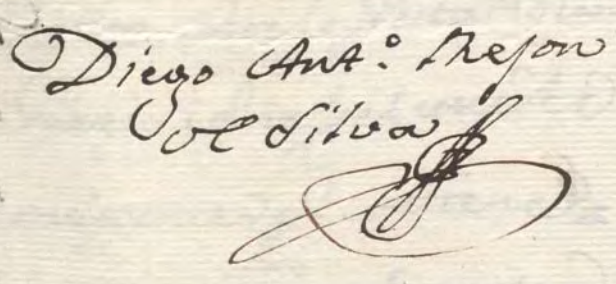 Diego Ant.º Rejon
de Silva